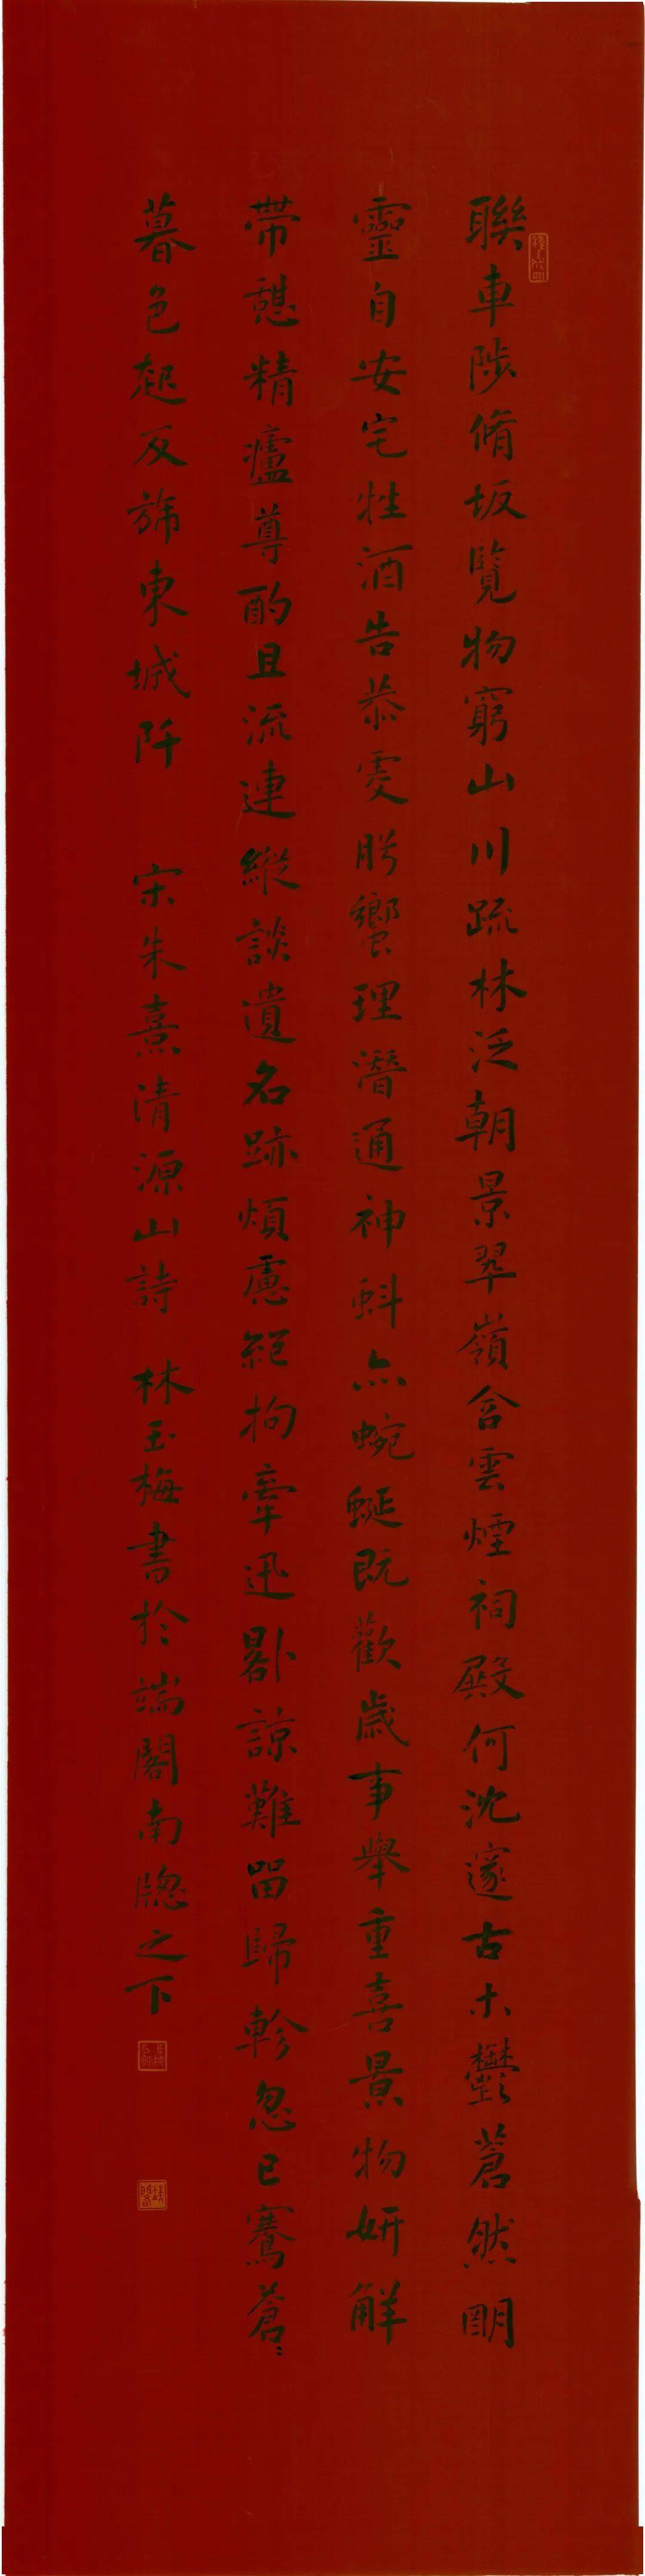 聯車陟脩坂覽物窮山川疏林泛朝景翠嶺含雲煙祠殿何沈邃古木鬱蒼然朙
靈自安宅牲酒告恭虔肸蠁理潛通神蚪亦蜿蜒既歡歲事舉重喜景物妍解
帶憇精廬尊酌且流連縱談遺名跡煩慮絕拘牽迅晷諒難留歸軫忽已騫蒼〻
暮色起反旆東城阡 宋朱熹清源山詩 林玉梅書於端閣南牕之下